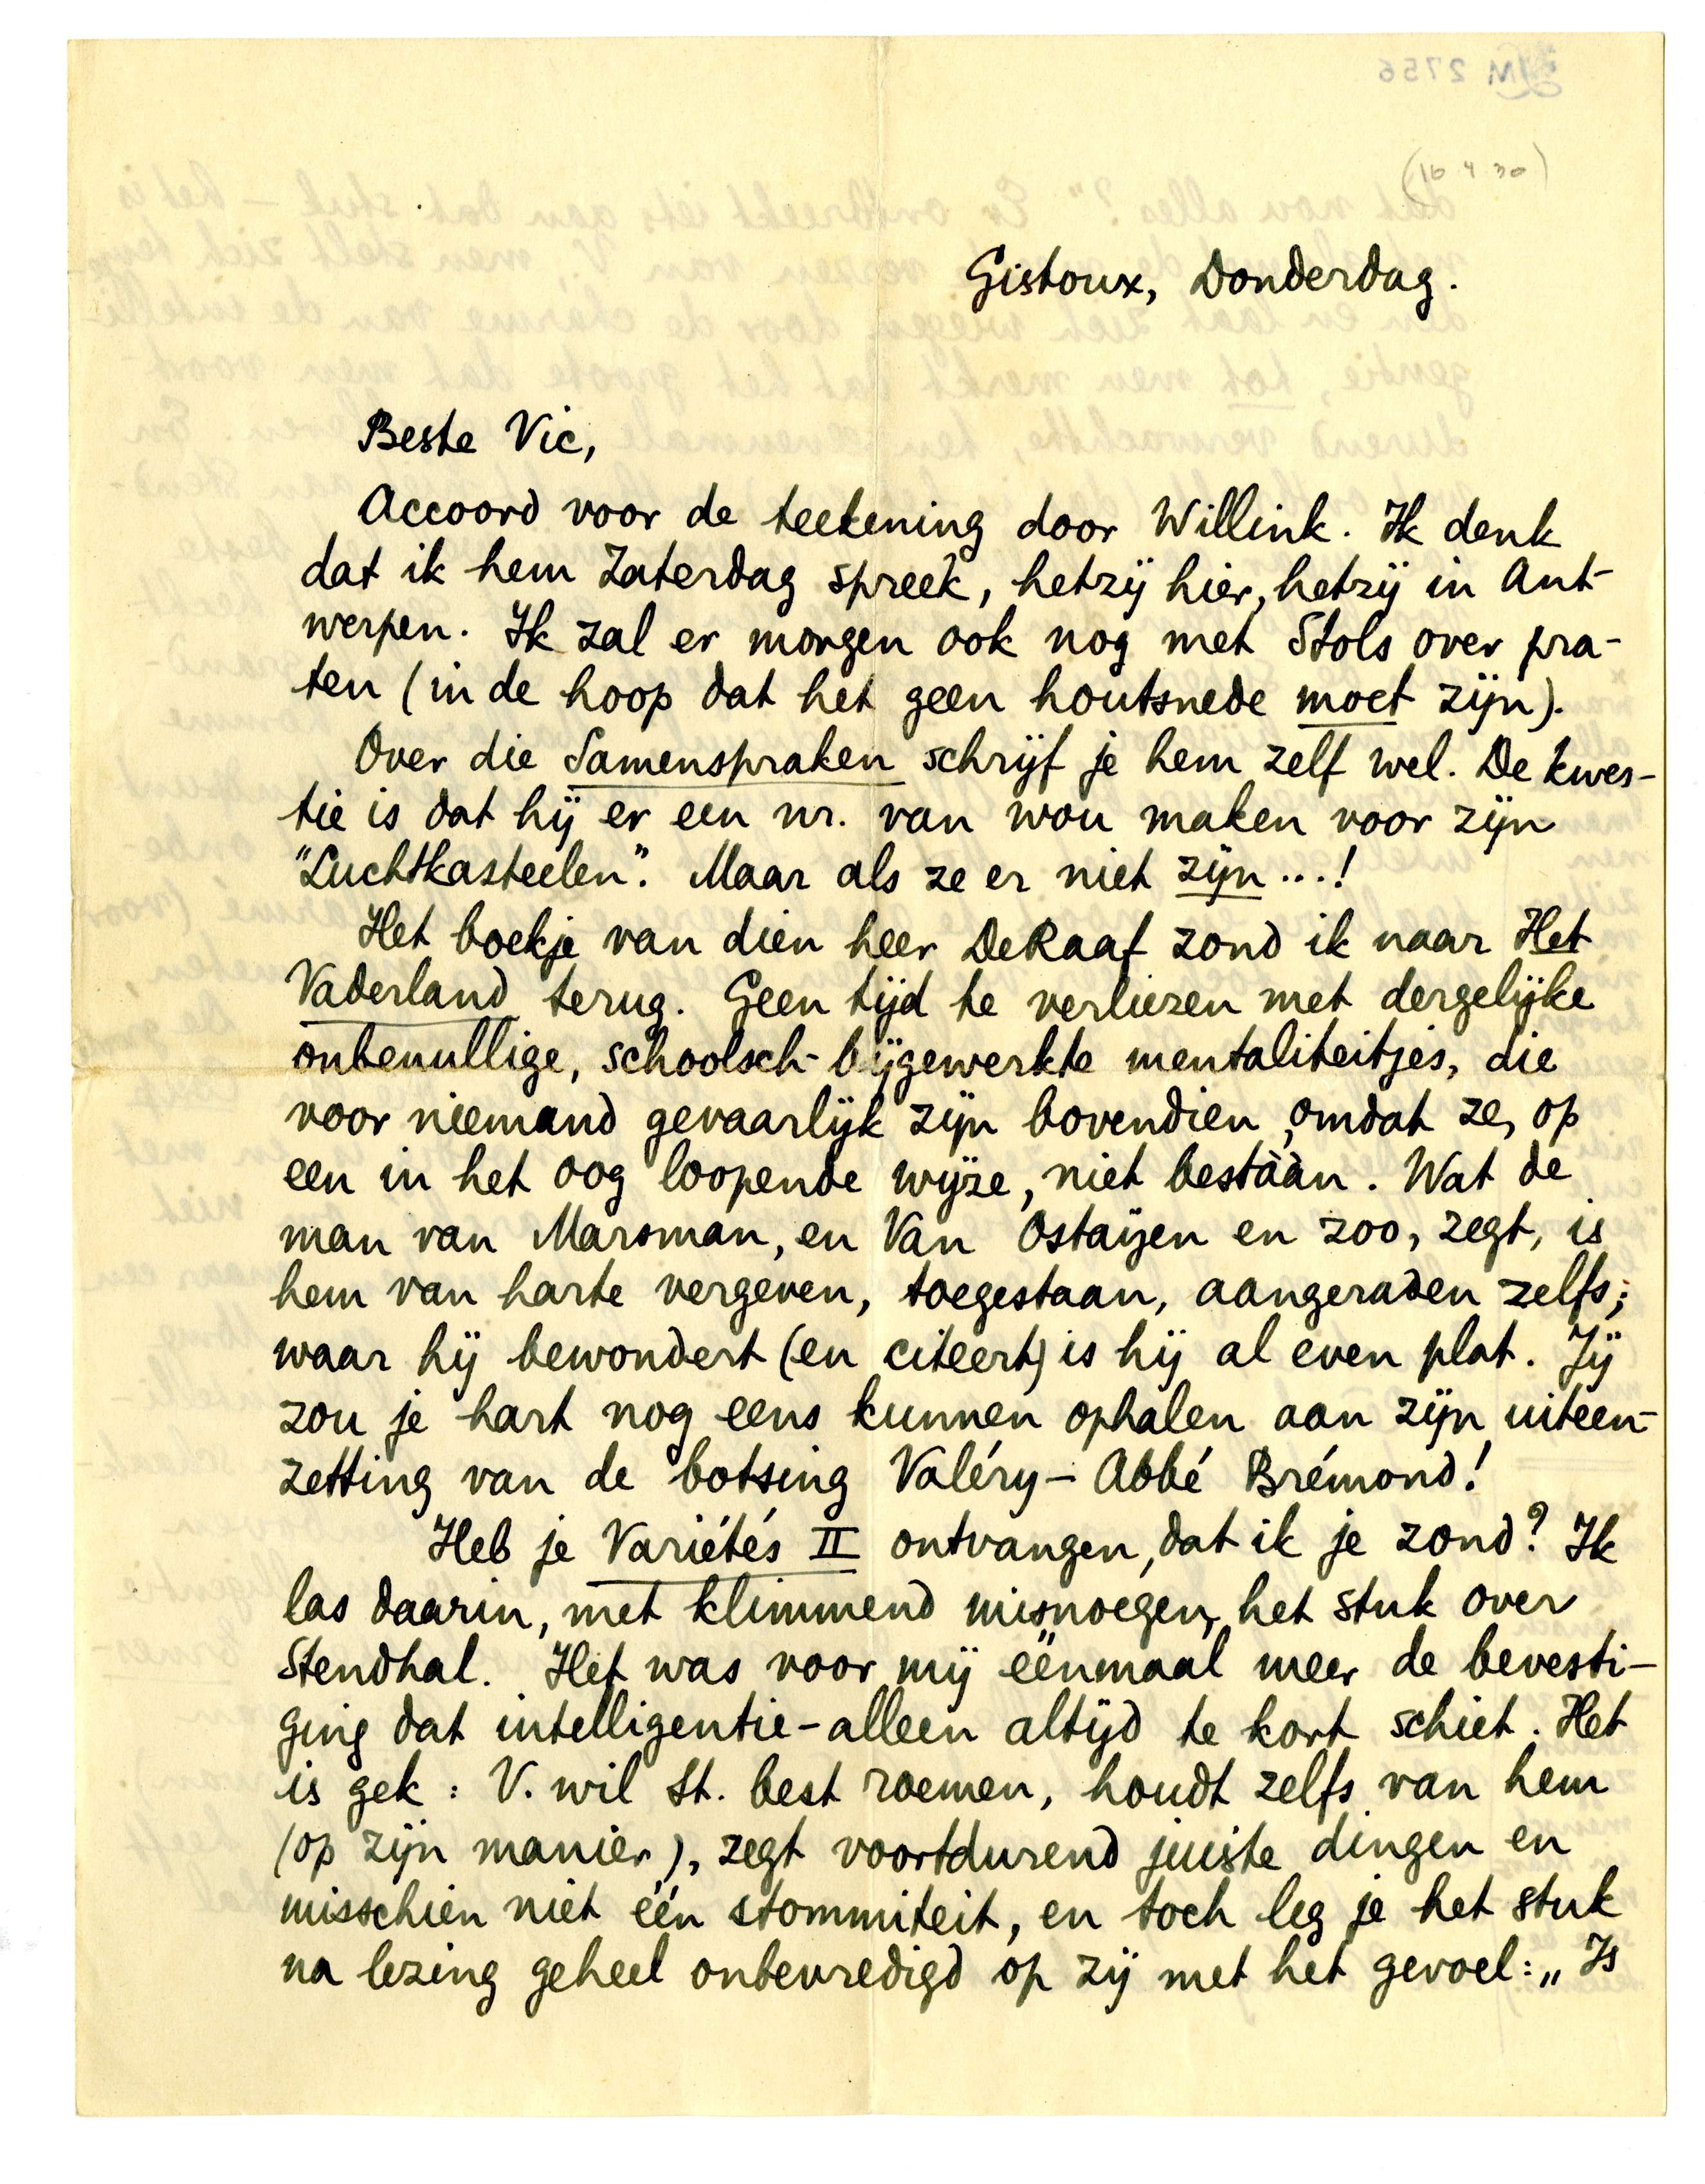 (16 4 30)
Gistoux, Donderdag.
Beste Vic,
Accoord voor de teekening door Willink. Ik denk
dat ik hem Zaterdag spreek, hetzij hier, hetzij in Ant-
werpen. Ik zal er morgen ook nog met Stols over pra-
ten (in de hoop dat het geen houtsnede moet zijn).
Over die Samenspraken schrijf je hem zelf wel. De kwes-
tie is dat hij er een nr. van wou maken voor zijn
"Luchtkasteelen". Maar als ze er niet zijn...!
Het boekje van dien heer De Raaf zond ik naar Het
Vaderland terug. Geen tijd te verliezen met dergelijke
onbenullige, schoolsch-bijgewerkte mentaliteitjes, die
voor niemand gevaarlijk zijn bovendien, omdat ze, op
een in het oog loopende wijze, niet bestààn. Wat de
man van Marsman, en Van Ostaijen en zoo, zegt, is
hem van harte vergeven, toegestaan, aangeraden zelfs;
waar hij bewondert (en citeert) is hij al even plat. Jij
zou je hart nog eens kunnen ophalen aan zijn uiteen-
zetting van de botsing Valéry – Abbé Brémond!
Heb je Variétés II ontvangen, dat ik je zond? Ik
las daarin, met klimmend misnoegen, het stuk over
Stendhal. Het was voor mij éénmaal meer de bevesti-
ging dat intelligentie-alleen altijd te kort schiet. Het
is gek: V. wil St. best roemen, houdt zelfs van hem
(op zijn manier), zegt voortdurend juiste dingen en
misschien niet één stommiteit, en toch leg je het stuk
na lezing geheel onbevredigd op zij met het gevoel: „Is